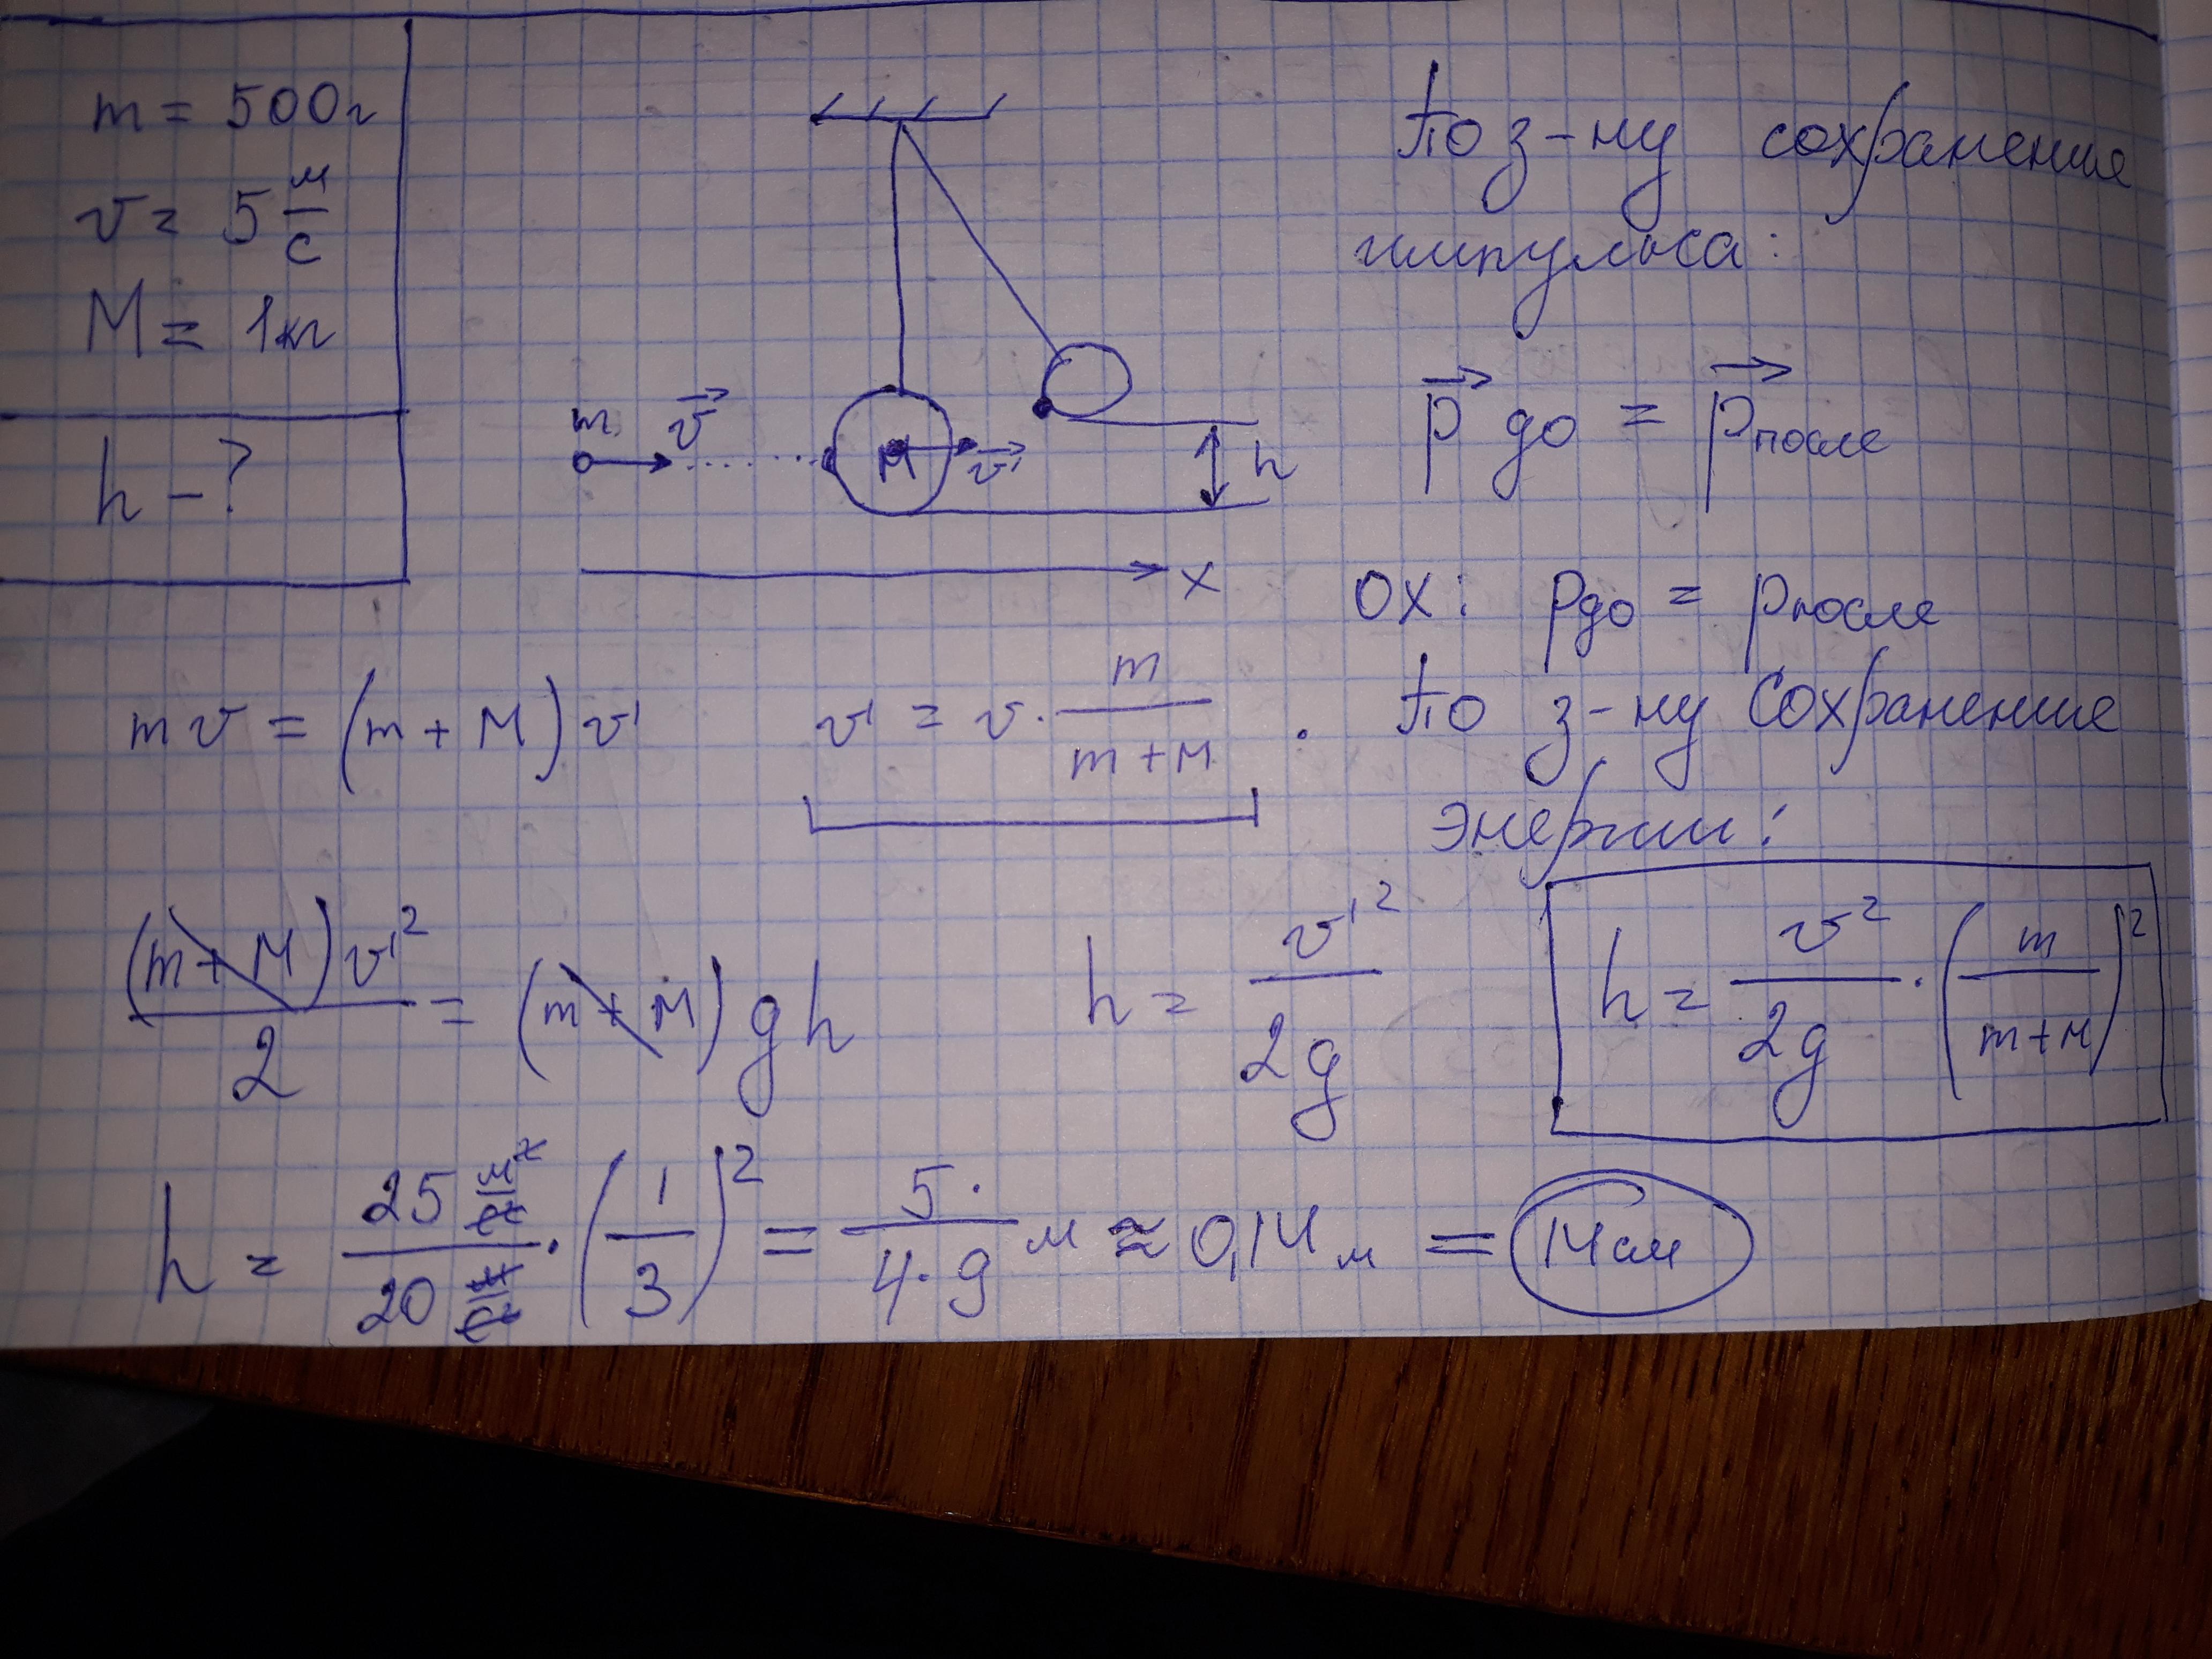 m = 500г
v = 5 м/с
M = 1кг
h - ?
m v⃗
M v⃗'
h
x
По з-ну сохранение
импульса:
p⃗ до = p⃗после
OX: pдо = pпосле
mv = (m + M) v' v' = v · m/(m+M) .
По з-ну Сохранение
энергии:
(m+M)v'²/2 = (m+M) g h h = v'²/2g h = v²/2g · (m/(m+M))²
h = 25 м²/с² / 20 м/с² · (1/3)² = 5·/4·9 м ≈ 0,14 м = 14 см